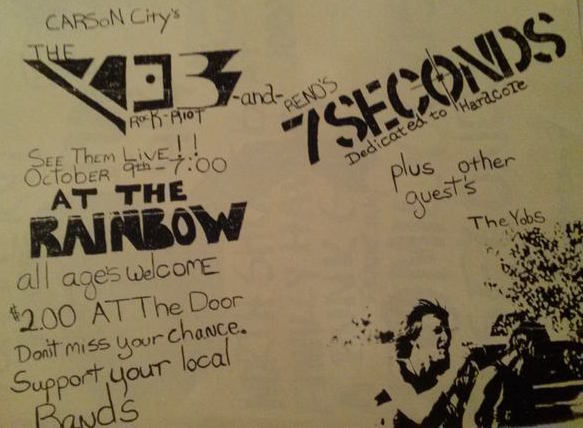 CARSON City's
THE
YOB
ROCK-RIOT
-and-
RENO'S
7SECONDS
Dedicated to Hardcore
SEE THEM LIVE!!
OCTOBER 9th-7:00
AT THE
RAINBOW
all age's welcome
$2.00 AT The Door
Don't miss your chance.
Support your local
Bands
plus other
guest's
The Yobs